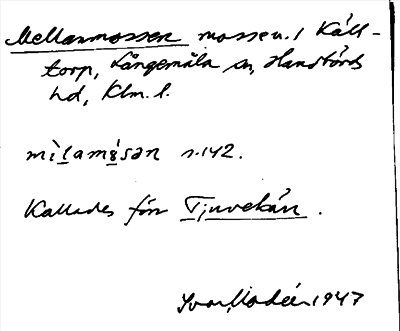 Mellanmossen mosse u. / Käll-
torp, Långemåla sn, Handbörds
hd, Klm. l.
mìlamòsən s. 142.
Kallades förr Tjuvekärr.
Ivar Modéer 1947